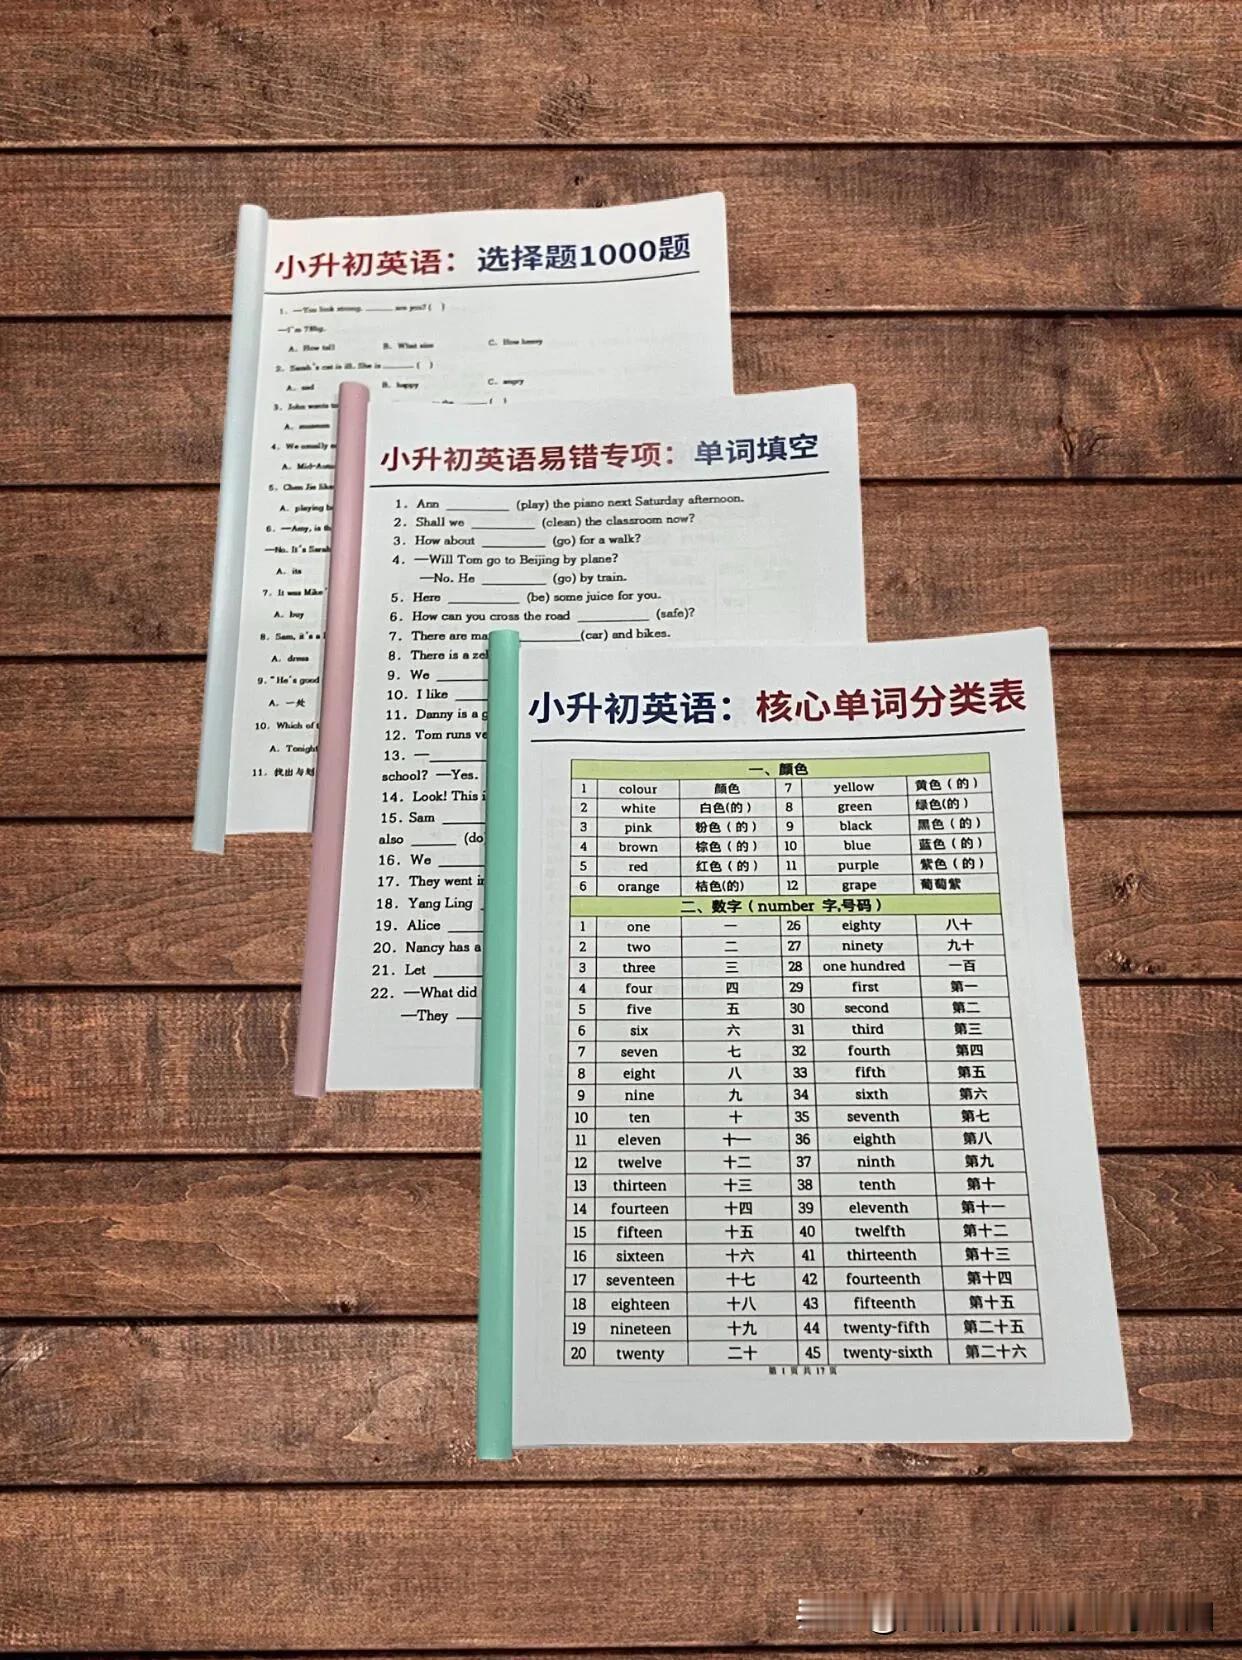 小升初英语：选择题1000题
1. —You look strong. ______ are you? ( )
—I'm 78kg.
A. How tall B. What size C. How heavy
2. Sarah's cat is ill. She is ______ ( )
A. sad B. happy C. angry
3. John wants to
A. museum
4. We usually
A. Mid-Autu
5. Chen Jie like
A. playing b
6. —Amy, is th
—No. It's Sarah
A. its
7. It was Mike'
A. buy
8. Sam, it's a
A. dress
9. "He's good
A. 一处
10. Which of t
A. Tonight
11. 找出与划
小升初英语易错专项：单词填空
1. Ann ________ (play) the piano next Saturday afternoon.
2. Shall we ________ (clean) the classroom now?
3. How about ________ (go) for a walk?
4. —Will Tom go to Beijing by plane?
—No. He ________ (go) by train.
5. Here ________ (be) some juice for you.
6. How can you cross the road ________ (safe)?
7. There are ma ________ (car) and bikes.
8. There is a ze
9. We ____
10. I like ____
11. Danny is a g
12. Tom runs ve
13. —____
school? —Yes.
14. Look! This i
15. Sam ____
also ____ (do
16. We ____
17. They went i
18. Yang Ling
19. Alice ____
20. Nancy has a
21. Let ____
22. —What did
—They ____
小升初英语：核心单词分类表
一、颜色
1 colour 颜色 7 yellow 黄色（的）
2 white 白色(的） 8 green 绿色(的）
3 pink 粉色（的） 9 black 黑色（的）
4 brown 棕色（的） 10 blue 蓝色（的）
5 red 红色（的） 11 purple 紫色（的）
6 orange 桔色(的) 12 grape 葡萄紫
二、数字（number 字,号码）
1 one 一 26 eighty 八十
2 two 二 27 ninety 九十
3 three 三 28 one hundred 一百
4 four 四 29 first 第一
5 five 五 30 second 第二
6 six 六 31 third 第三
7 seven 七 32 fourth 第四
8 eight 八 33 fifth 第五
9 nine 九 34 sixth 第六
10 ten 十 35 seventh 第七
11 eleven 十一 36 eighth 第八
12 twelve 十二 37 ninth 第九
13 thirteen 十三 38 tenth 第十
14 fourteen 十四 39 eleventh 第十一
15 fifteen 十五 40 twelfth 第十二
16 sixteen 十六 41 thirteenth 第十三
17 seventeen 十七 42 fourteenth 第十四
18 eighteen 十八 43 fifteenth 第十五
19 nineteen 十九 44 twenty-fifth 第二十五
20 twenty 二十 45 twenty-sixth 第二十六
第 1 页 共 17 页